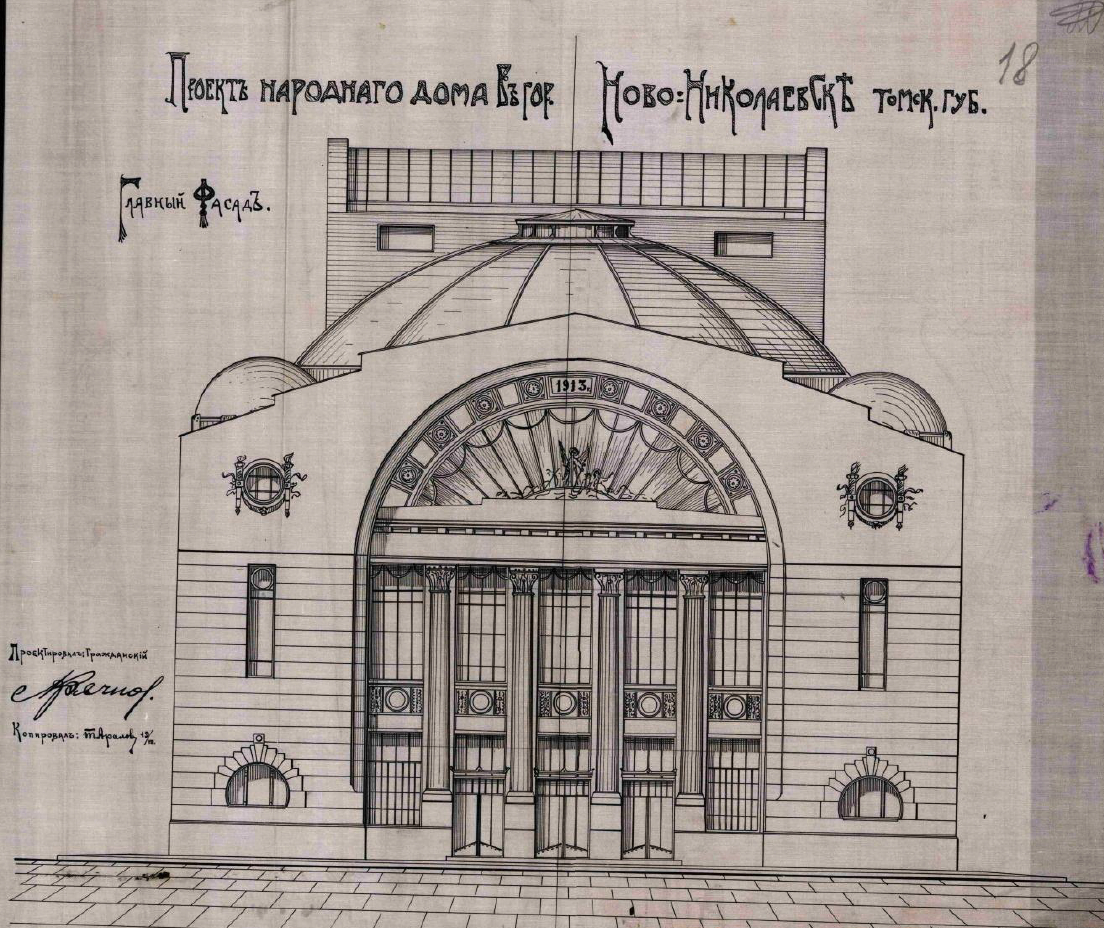 Проектъ народнаго дома въ гор. Ново=Николаевскѣ томск. губ.
18
Главный Фасадъ.
1913 г.
Проектировалъ: Гражданскій
Копировалъ: